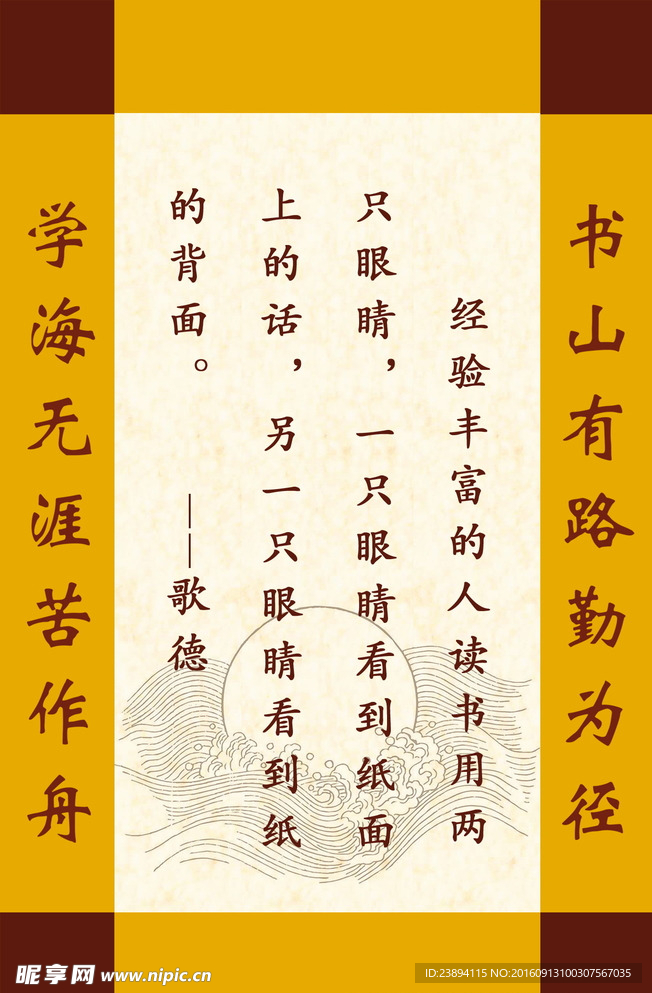 书山有路勤为径
经验丰富的人读书用两
只眼睛，一只眼睛看到纸面
上的话，另一只眼睛看到纸
的背面。 ——歌德
学海无涯苦作舟
昵享网 www.nipic.cn
ID:23894115 NO:20160913100307567035